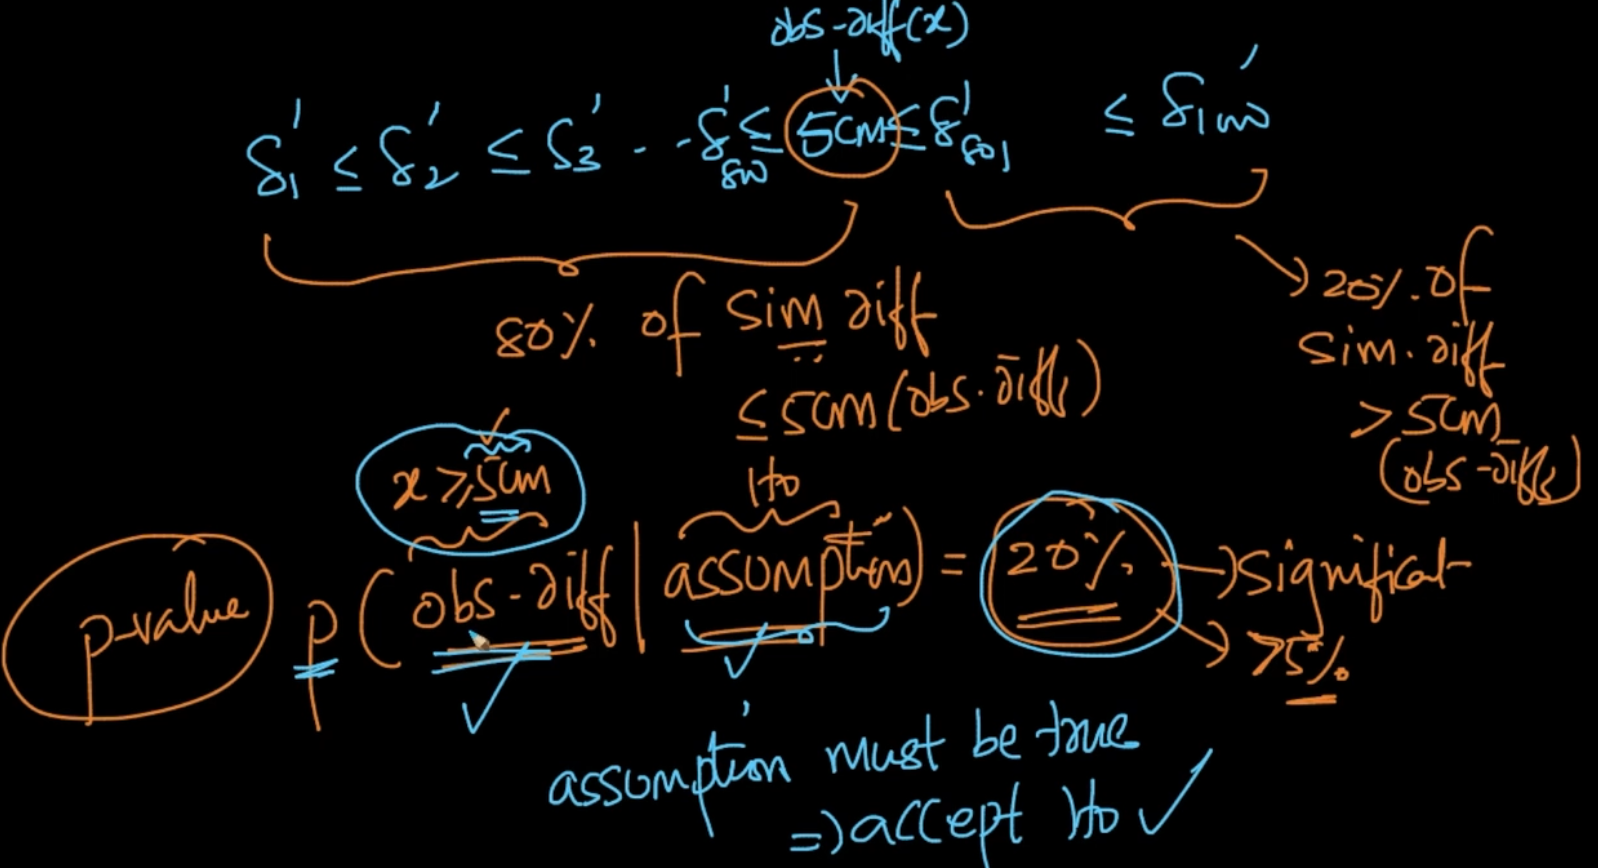 obs-diff(x)
δ₁' ≤ δ₂' ≤ δ₃' . . . δ'₈₀₀ ≤ 5cm ≤ δ'₈₀₁ ≤ δ₁₀₀₀'
80% of sim diff
≤ 5cm (obs. diffs)
20%. of
sim. diff
> 5cm
(obs-diffs)
x ≥ 5cm
H₀
p-value p ( obs-diff | assumption) = 20% → significat
→ >5%
assumption must be true
⇒ accept H₀ ✓